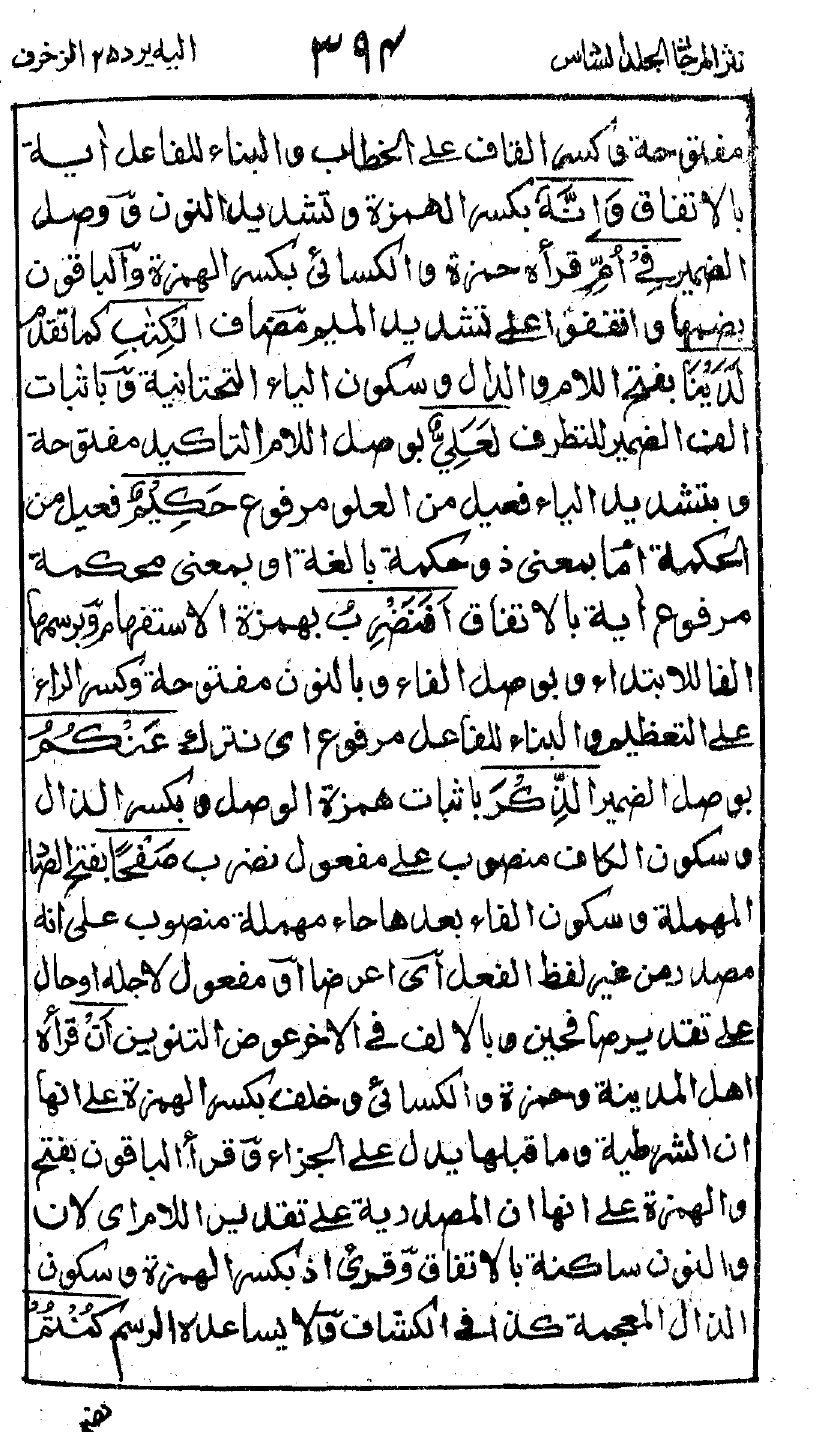 نثر المرجان المجلد السادس ٣٩٤ اليه يرد ٢٥ الزخرف
مفتوحة وكسر القاف على الخطاب والبناء للفاعل اية
بالاتفاق وَاِنَّهٗ بكسر الهمزة وتشديد النون وَّ وصل
الضمير فِيْٓ اُمِّ قرأه حمزة والكسائى بكسر الهمزة وَّالباقون
بضمها واتفقوا على تشديد الميم مضاف الْكِتٰبِ كما تقدم
لَدَيْنَا بفتح اللام والدال وسكون الياء التحتانية وَّباثبات
الف الضمير للتطرف لَعَلِيٌّ بوصل اللام التاكيد مفتوحة
وبتشديد الياء فعيل من العلو مرفوع حَكِيْمٌ فعيل من
الحكمة امّا بمعنى ذو حكمة بالغة او بمعنى محكمة
مرفوع اية بالاتفاق اَفَنَضْرِبُ بهمزة الاستفهام وَّبرسمها
الفا للابتداء وبوصل الفاء وبالنون مفتوحة وكسر الراء
على التعظيم والبناء للفاعل مرفوع اى نترك عَنْكُمُ
بوصل الضمير الذِّكْرَ باثبات همزة الوصل وبكسر الذال
وسكون الكاف منصوب على مفعول نضرب صَفْحًا بفتح الصاد
المهملة وسكون الفاء بعدها حاء مهملة منصوب على انه
مصدر من غير لفظ الفعل اَى اعرضا اوَ مفعول لاجله اوحال
على تقدير صافحين وبالالف فى الاخر عوض التنوين اَنْ قرأه
اهل المدينة وحمزة والكسائى وخلف بكسر الهمزة على انها
ان الشرطية وما قبلها يدل على الجزاء وَّقرأ الباقون بفتح
والهمزة على انها ان المصدرية على تقدير اللام اى لان
والنون ساكنة بالاتفاق وَّقرئ اذ بكسر الهمزة وسكون
الذال المعجمة كذا فى الكشاف وَّلا يساعده الرسم كُنْتُمْ